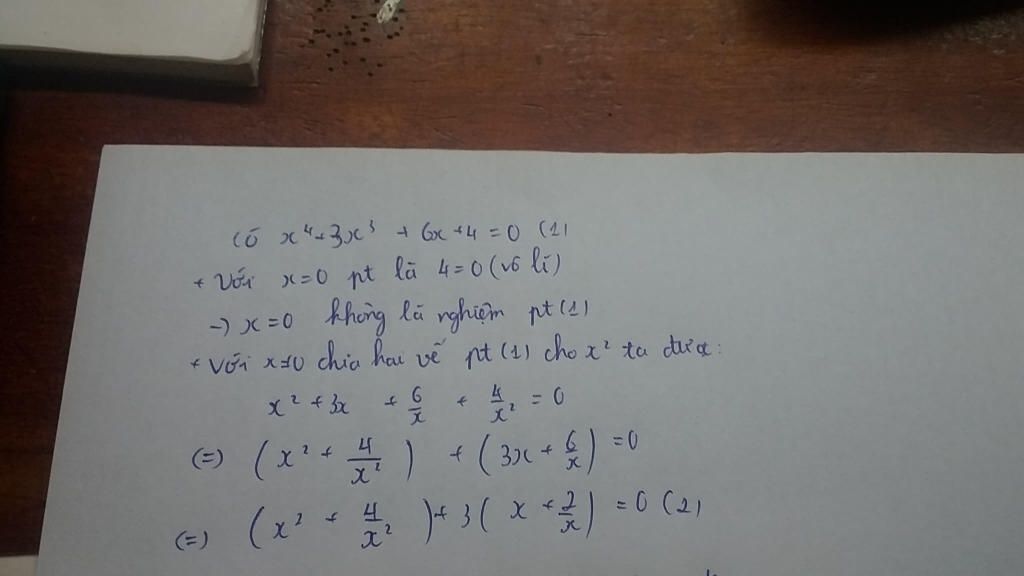 Có x⁴+3x³ + 6x+4 = 0 (1)
+ Với x=0 pt là 4=0 (vô lí)
→ x=0 không là nghiệm pt (1)
+ Với x≠0 chia hai vế pt (1) cho x² ta được:
x² + 3x + 6/x + 4/x² = 0
(=) (x² + 4/x²) + (3x + 6/x) = 0
(=) (x² + 4/x²) + 3(x + 2/x) = 0 (2)